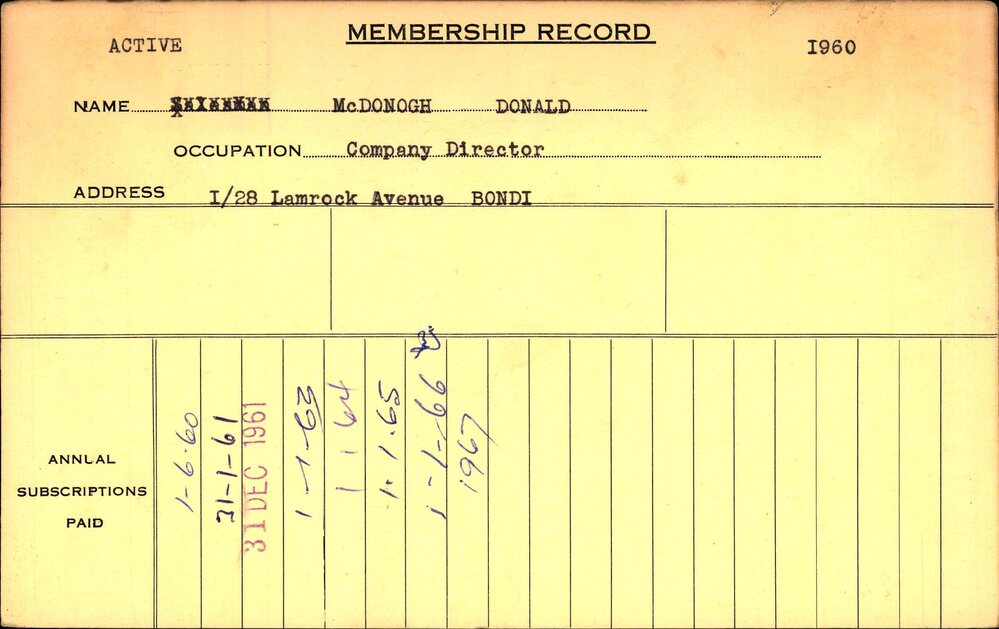 MEMBERSHIP RECORD
ACTIVE 1960
NAME McDONOGH DONALD
OCCUPATION Company Director
ADDRESS I/28 Lamrock Avenue BONDI
ANNUAL
SUBSCRIPTIONS
PAID
1-6-60
31-1-61
31 DEC 1961
1-1-63
1 1 64
1.1.65
1-1-66
1967